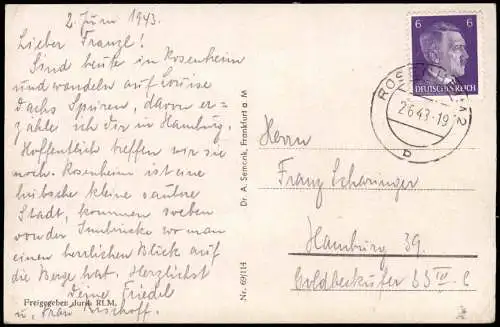 2. Juni 1943.
Lieber Franzl!
Sind heute in Rosenheim
und wandeln auf Louise
dachs Spuren, davon er=
zähle ich dir in Hamburg.
Hoffentlich treffen wir sie
noch. Rosenheim ist eine
hübsche kleine saubere
Stadt, kommen soeben
von der Innbrücke wo man
einen herrlichen Blick auf
die Berge hat. Herzlichst
Deine Friedel
u. Frau Bischoff.
Freigegeben durch RLM.
Nr. 69/114
Dr A. Semcnk, Frankfurt a M
6 6
DEUTSCHES REICH
ROSENHEIM 2
2.6.43.-19
b
Herrn
Franz Scharinger
Hamburg 39.
Goldbekufer 33 IV. l